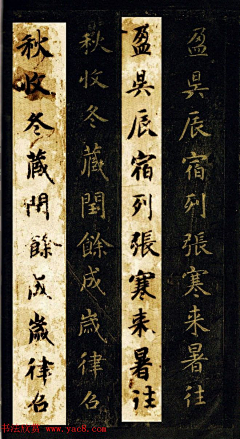 盈昃辰宿列張寒来暑往
盈昃辰宿列張寒来暑往
秋收冬藏閏餘成歲律召
秋收冬藏閏餘成歲律召
书法欣赏
www.yac8.com